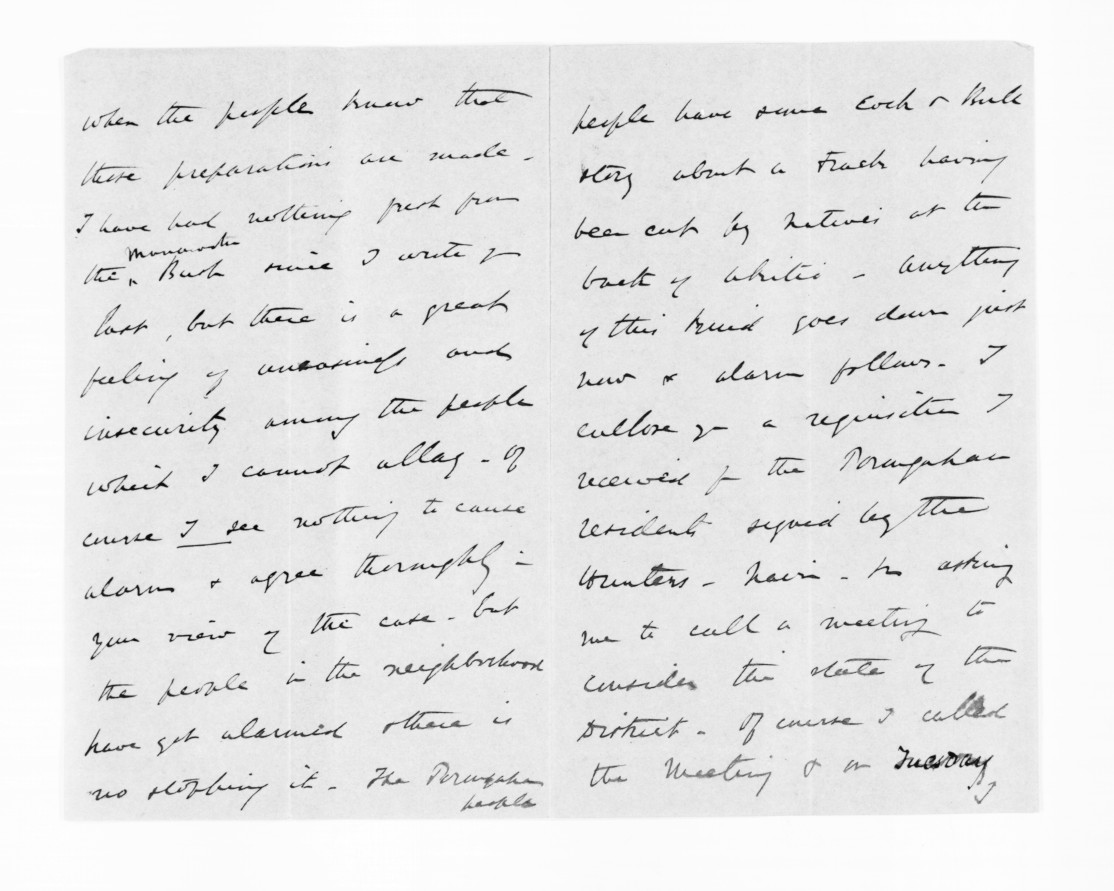 when the people know that
these preparations are made -
I have had nothing fresh from
Manawatu
the Bush since I wrote you
last, but there is a great
feeling of uneasiness and
insecurity among the people
which I cannot allay - of
course I see nothing to cause
alarm & agree thoroughly in
your view of the case - but
the people in the neighborhood
have got alarmed & there is
no stopping it - The Porangahau
people
people have some Cock & Bull
story about a Track having
been cut by natives at the
back of Akitio - Anything
of this kind goes down just
now & alarm follows - I
enclose you a requisition I
received fm the Porangahau
residents signed by the
Hunters - Nairn - &c asking
me to call a meeting to
consider the state of the
District - Of course I called
the Meeting & on Tuesday
I